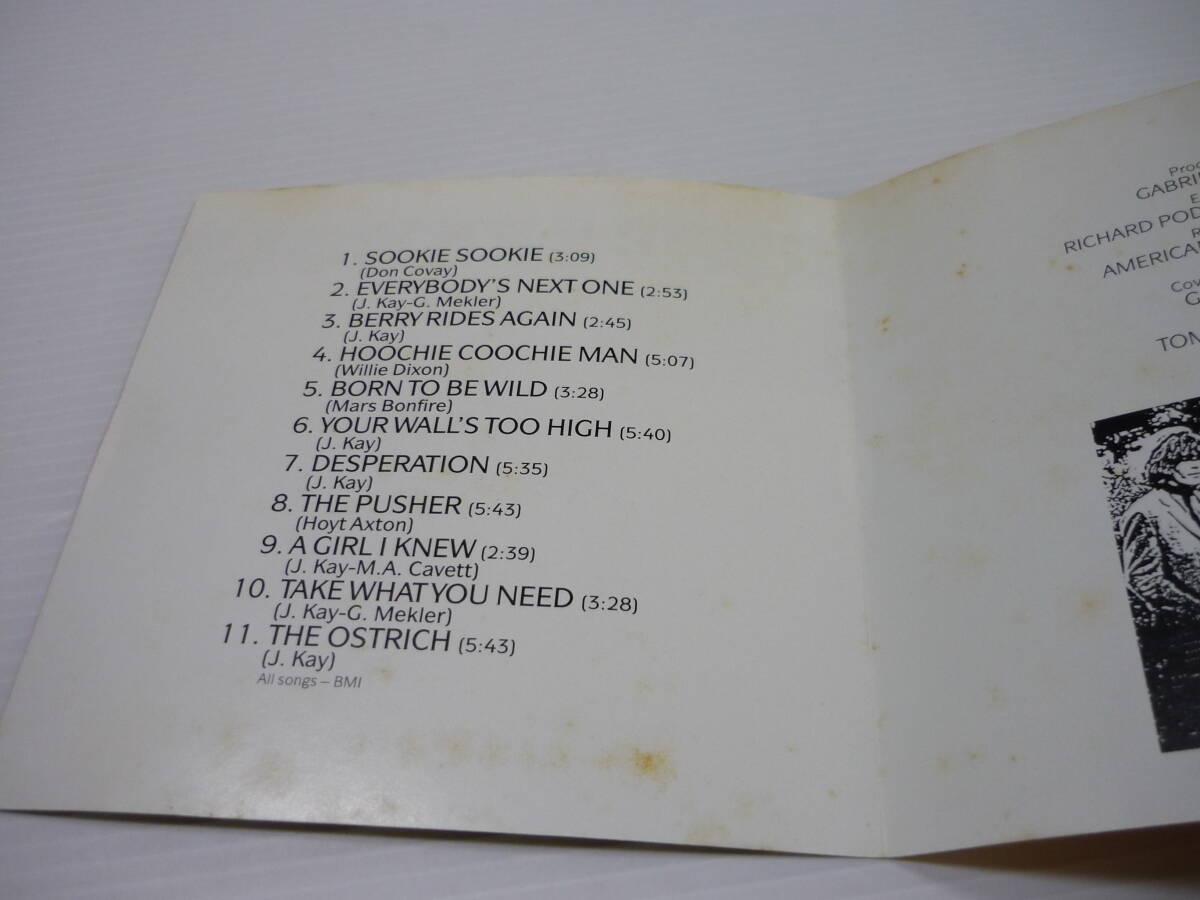 1. SOOKIE SOOKIE (3:09)
(Don Covay)
2. EVERYBODY'S NEXT ONE (2:53)
(J. Kay-G. Mekler)
3. BERRY RIDES AGAIN (2:45)
(J. Kay)
4. HOOCHIE COOCHIE MAN (5:07)
(Willie Dixon)
5. BORN TO BE WILD (3:28)
(Mars Bonfire)
6. YOUR WALL'S TOO HIGH (5:40)
(J. Kay)
7. DESPERATION (5:35)
(J. Kay)
8. THE PUSHER (5:43)
(Hoyt Axton)
9. A GIRL I KNEW (2:39)
(J. Kay-M.A. Cavett)
10. TAKE WHAT YOU NEED (3:28)
(J. Kay-G. Mekler)
11. THE OSTRICH (5:43)
(J. Kay)
All songs – BMI
RICHARD